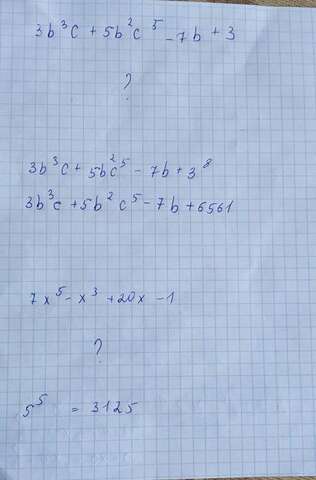 3b³c + 5b²c⁵ - 7b + 3
?
3b³c + 5bc²⁵ - 7b + 3⁸
3b³c + 5b²c⁵ - 7b + 6561
7x⁵ - x³ + 20x - 1
?
5⁵ = 3125